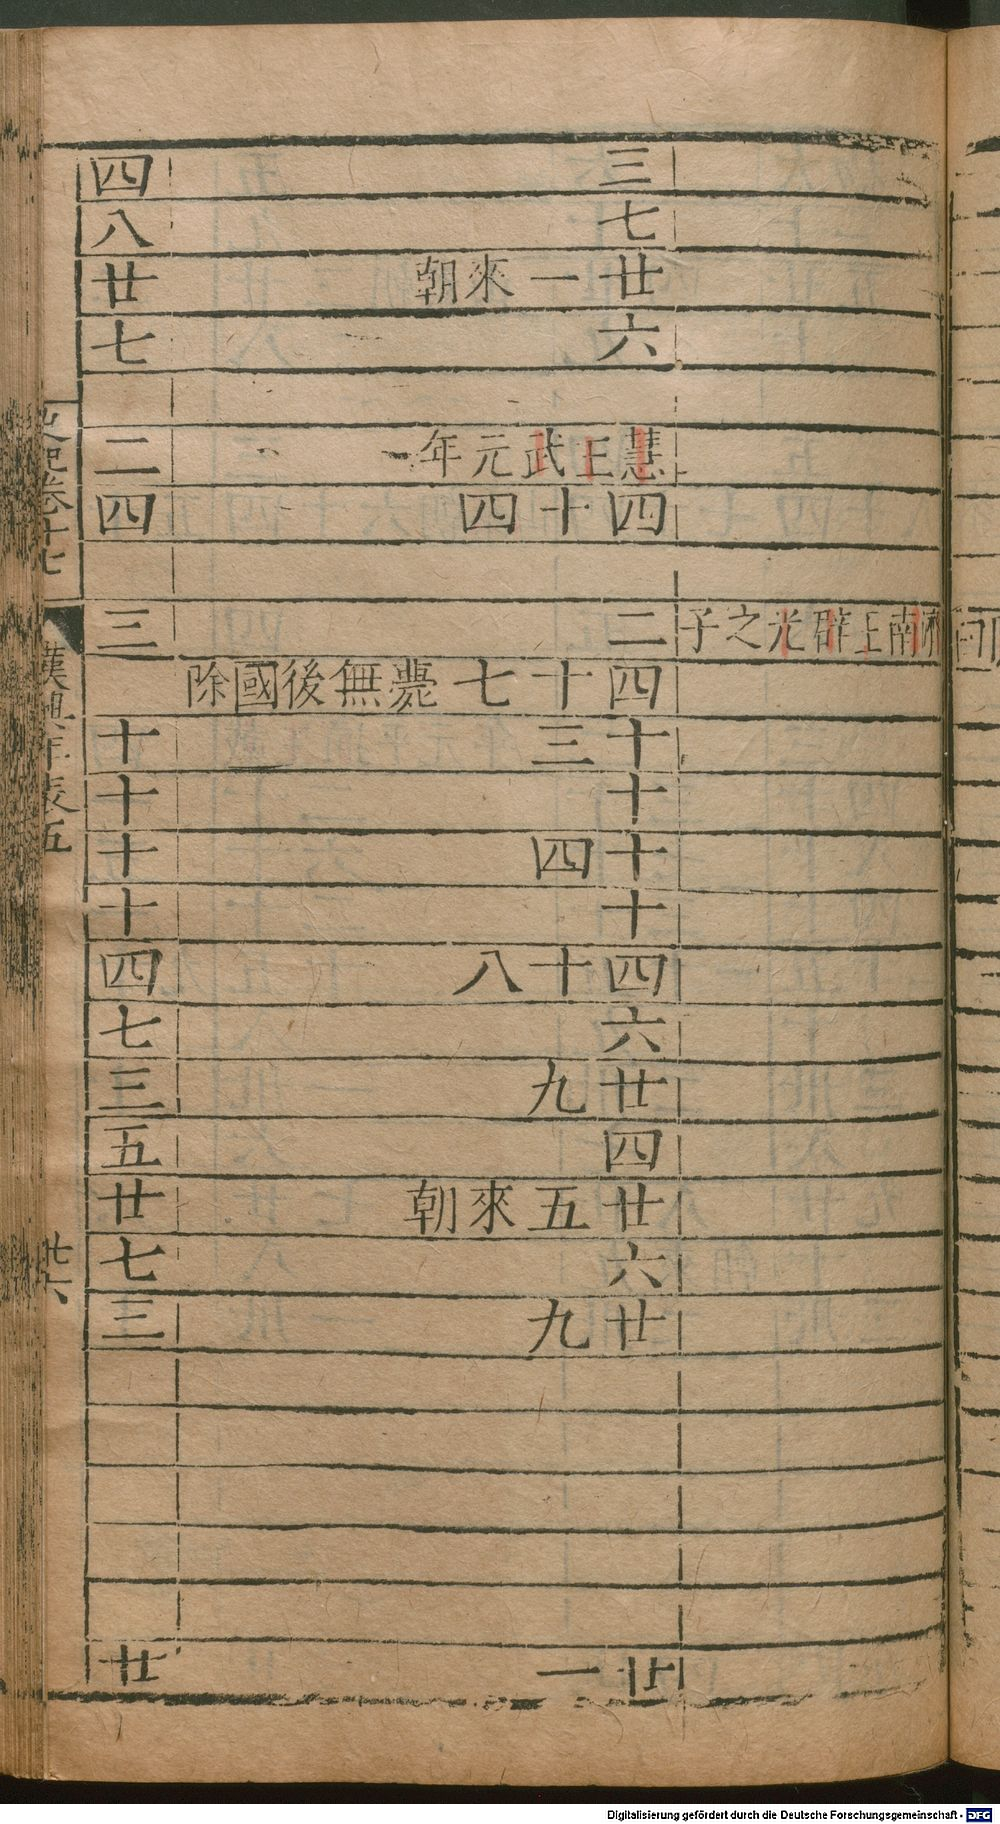 濟南王辟光之子
三
七
廿一來朝
六
慧王武元年
四十四
二
四十七薨無後國除
十三
十
十四
十
四十八
六
廿九
四
廿五來朝
六
廿九
廿一
四
八
廿
七
二
四
三
十
十
十
十
四
七
三
五
廿
七
三
廿
史記卷十七
漢興年表五
廿六
Digitalisierung gefördert durch die Deutsche Forschungsgemeinschaft - DFG